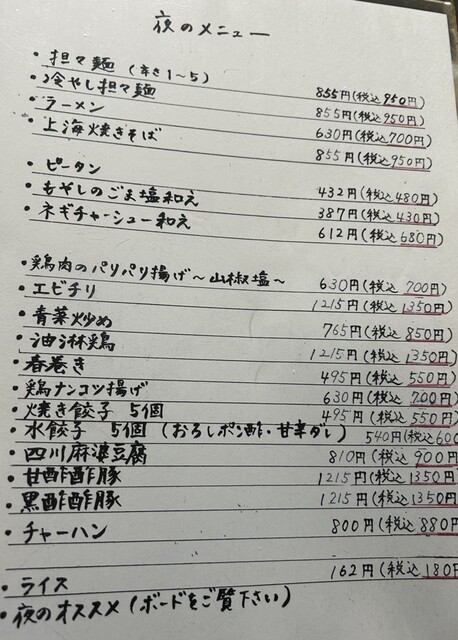 夜のメニュー
・担々麺 (辛さ1~5) 855円(税込950円)
・冷やし担々麺 855円(税込950円)
・ラーメン 630円(税込700円)
・上海焼きそば 855円(税込950円)
・ピータン 432円(税込480円)
・もやしのごま塩和え 387円(税込430円)
・ネギチャーシュー和え 612円(税込680円)
・鶏肉のパリパリ揚げ～山椒塩～ 630円(税込700円)
・エビチリ 1215円(税込1350円)
・青菜炒め 765円(税込850円)
・油淋鶏 1215円(税込1350円)
・春巻き 495円(税込550円)
・鶏ナンコツ揚げ 630円(税込700円)
・焼き餃子 5個 495円(税込550円)
・水餃子 5個 (おろしポン酢・甘辛ダレ) 540円(税込600
・四川麻婆豆腐 810円(税込900円)
・甘酢酢豚 1215円(税込1350円)
・黒酢酢豚 1215円(税込1350円)
・チャーハン 800円(税込880円)
・ライス 162円(税込180円)
・夜のオススメ(ボードをご覧下さい)